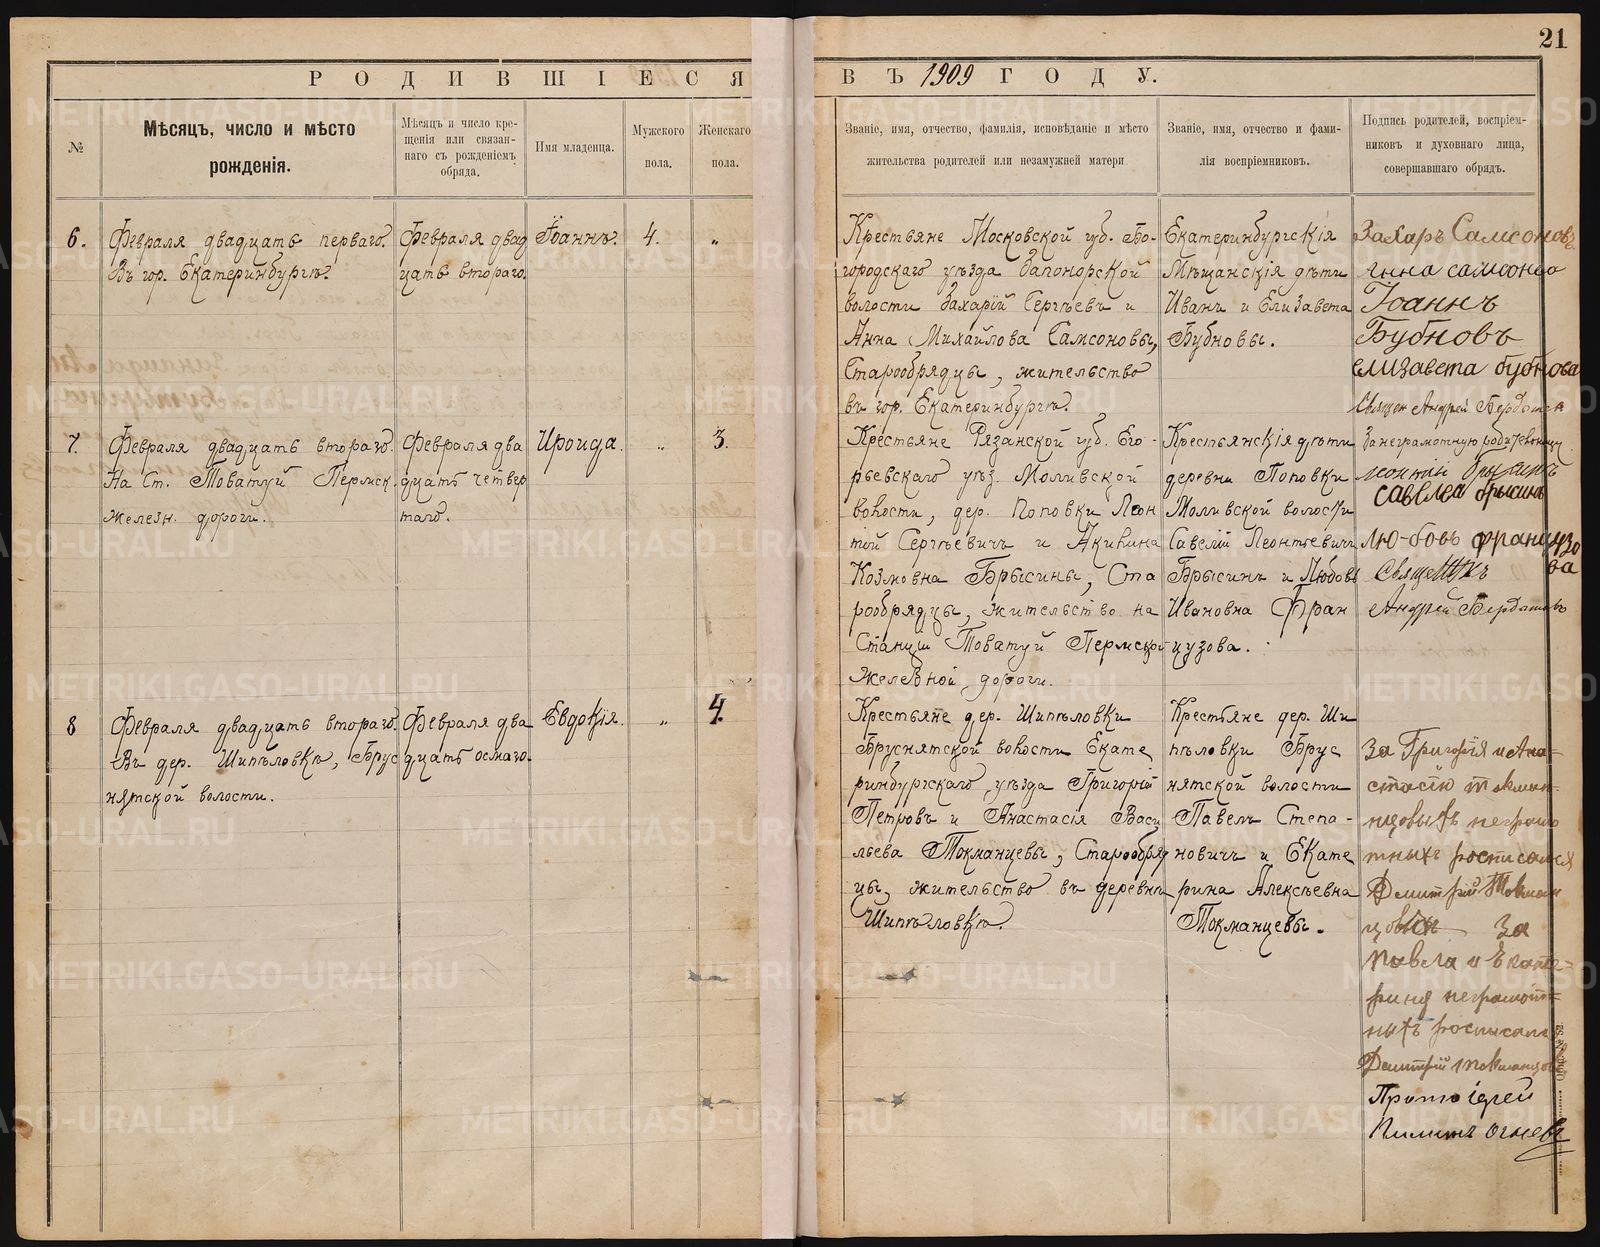 21
РОДИВШІЕСЯ ВЪ 1909 ГОДУ.
№
Мѣсяцъ, число и мѣсто
рожденія.
Мѣсяцъ и число кре-
щенія или связан-
наго съ рожденіемъ
обряда.
Имя младенца.
Мужского
пола.
Женскаго
пола.
Званіе, имя, отчество, фамилія, исповѣданіе и мѣсто
жительства родителей или незамужней матери
Званіе, имя, отчество и фами-
лія воспріемниковъ.
Подпись родителей, воспріем-
никовъ и духовнаго лица,
совершавшаго обрядъ.
6.
Февраля двадцать перваго.
Въ гор. Екатеринбургѣ.
Февраля двад
цать втораго.
Іоаннъ.
4.
„
Крестьяне Московской губ. Бо-
городскаго уѣзда Запонорской
волости Захарій Сергѣевъ и
Анна Михайлова Самсоновы,
Старообрядцы, жительство
въ гор. Екатеринбургѣ.
Екатеринбургскія
Мѣщанскія дѣти
Иванъ и Елизавета
Бубновы.
Захаръ Самсоновъ
анна самсонова
Іоаннъ
Бубновъ
елизавета бубнова
Священ Андрей
7.
Февраля двадцать втораго.
На Ст. Товатуй Пермск.
железн. дороги.
Февраля два
дцать четвер
таго.
Ироида.
„
3.
Крестьяне Рязанской губ. Его-
рьевскаго уѣз. Моливской
волости, дер. Поповки Леон
тій Сергѣевичъ и Акилина
Козмовна Брысины, Ста
рообрядцы, жительство на
Станціи Товатуй Пермской
Железной дороги.
Крестьянскія дѣти
деревни Поповки
Моливской волости
Савелій Леонтьевичъ
Брысинъ и Любовь
Ивановна Фран
цузова.
За неграмотную
леонтій брысинъ
савелеа брысинъ
Лю-бовь француzо
ва
Священникъ
Андрей
8
Февраля двадцать втораго.
Въ дер. Шипѣловкѣ, Брус
нятской волости.
Февраля два
дцать осмаго.
Евдокія.
„
4.
Крестьяне дер. Шипѣловки
Бруснятской волости Екате
ринбургскаго уѣзда Григорій
Петровъ и Анастасія Васи
льева Токманцевы, Старообряд
цы, жительство въ деревнѣ
Шипѣловкѣ.
Крестьяне дер. Ши
пѣловки Брус
нятской волости
Павелъ Степа-
новичъ и Екате
рина Алексѣевна
Токманцевы.
За Григорія и Ана-
стасію токман-
цовыхъ неграмо
тныхъ росписался
Дмитрій Токман
цовын За
павела и Екате-
рину неграмот-
ныхъ росписалс
Дмитрій токманцов
Протоіерей
Пименъ огневъ
METRIKI.GASO-URAL.RU